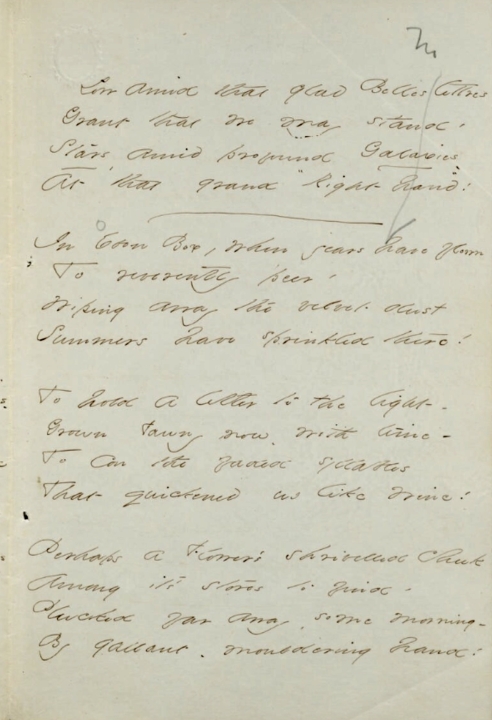 Low amid that glad Belles lettres
Grant that we may stand -
Stars, amid profound Galaxies -
At that grand "Right hand"!
In Ebon Box, when years have flown
To reverently peer -
Wiping away the velvet dust
Summers have sprinkled there!
To hold a letter to the light -
Grown Tawny now, with time -
To con the faded syllables
That quickened us like Wine!
Perhaps a Flower's shrivelled cheek
Among its stores to find -
Plucked far away, some morning -
By gallant, mouldering hand!